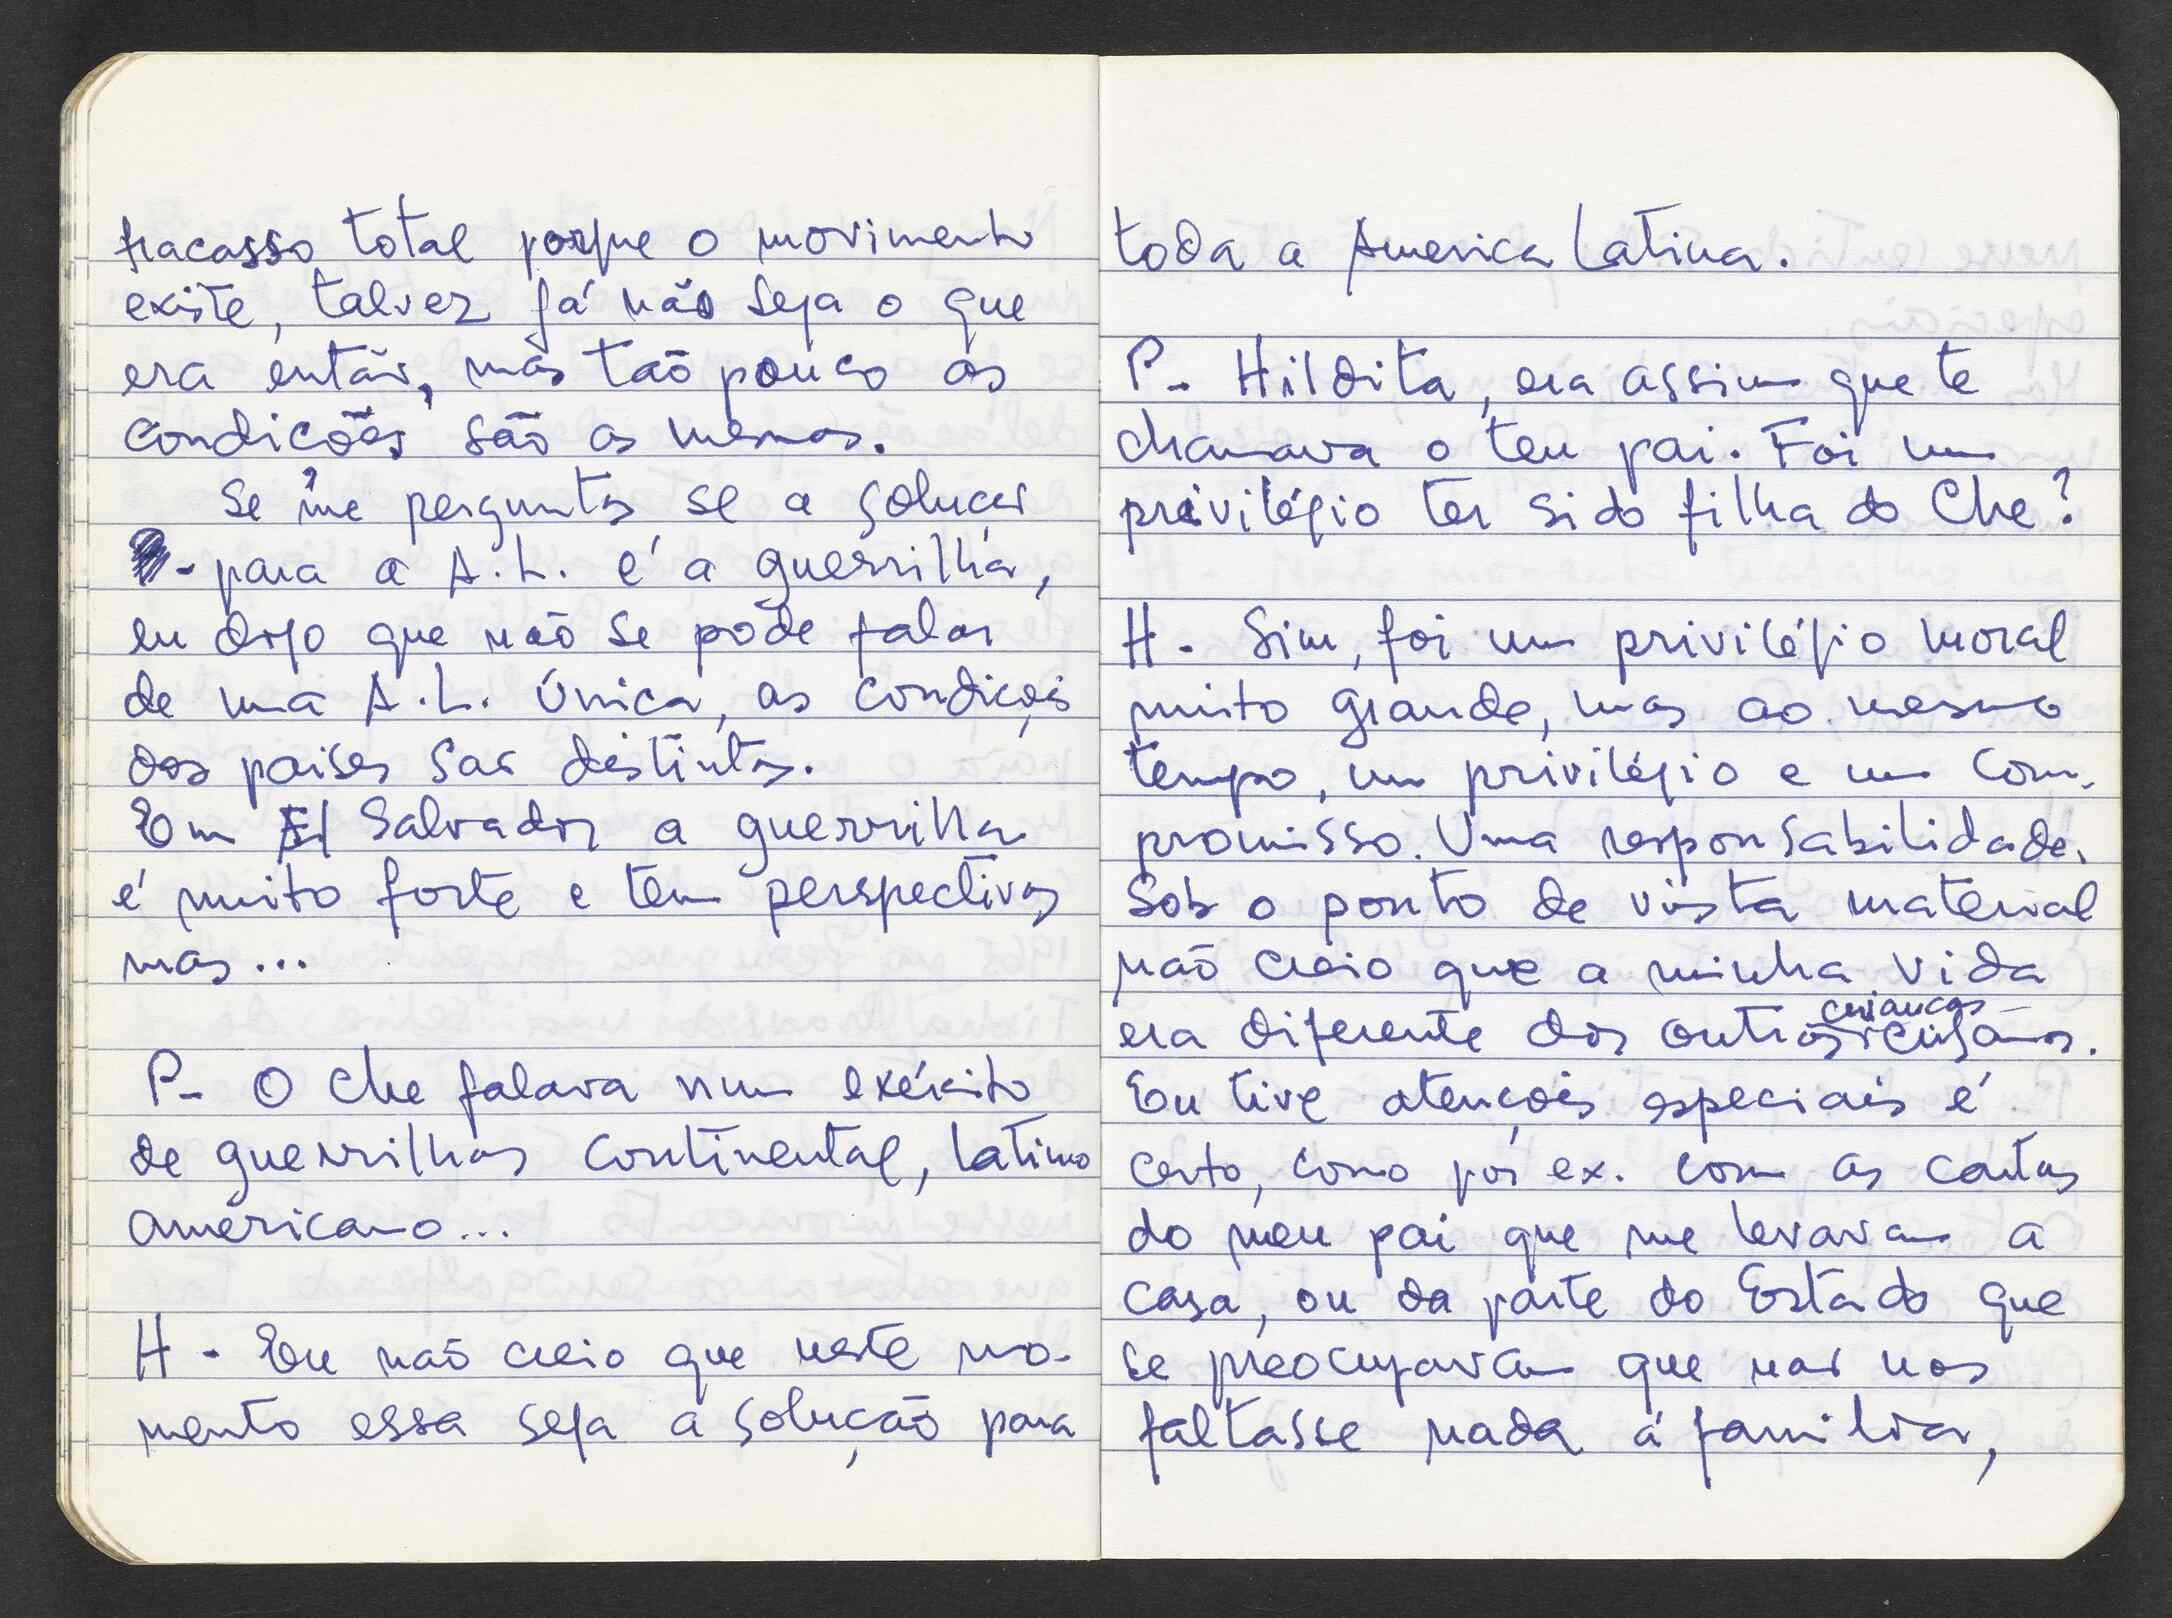 fracasso total porque o movimento
existe, talvez já não seja o que
era então, mas tão pouco as
condições são as mesmas.
Se me perguntas se a solução
- para a A.L. é a guerrilha,
eu digo que não se pode falar
de uma A.L. única, as condições
dos paises são distintas.
Em El Salvador a guerrilha
é muito forte e tem perspectivas
mas...
P- O Che falava num exército
de guerrilhas continental, latino
americano...
H - Eu não creio que neste mo-
mento essa seja a solução para
toda a America Latina.
P- Hildita, era assim que te
chamava o teu pai. Foi um
privilégio ter sido filha do Che?
H- Sim, foi um privilégio moral
muito grande, mas ao mesmo
tempo, um privilégio e um com-
promisso. Uma responsabilidade.
Sob o ponto de vista material
não creio que a minha vida
crianças
era diferente dos outros cubanos.
Eu tive atenções especiais é
certo, como por ex. com as cartas
do meu pai que me levavam a
casa, ou da parte do Estado que
se preocupavam que não nos
faltasse nada á familia,